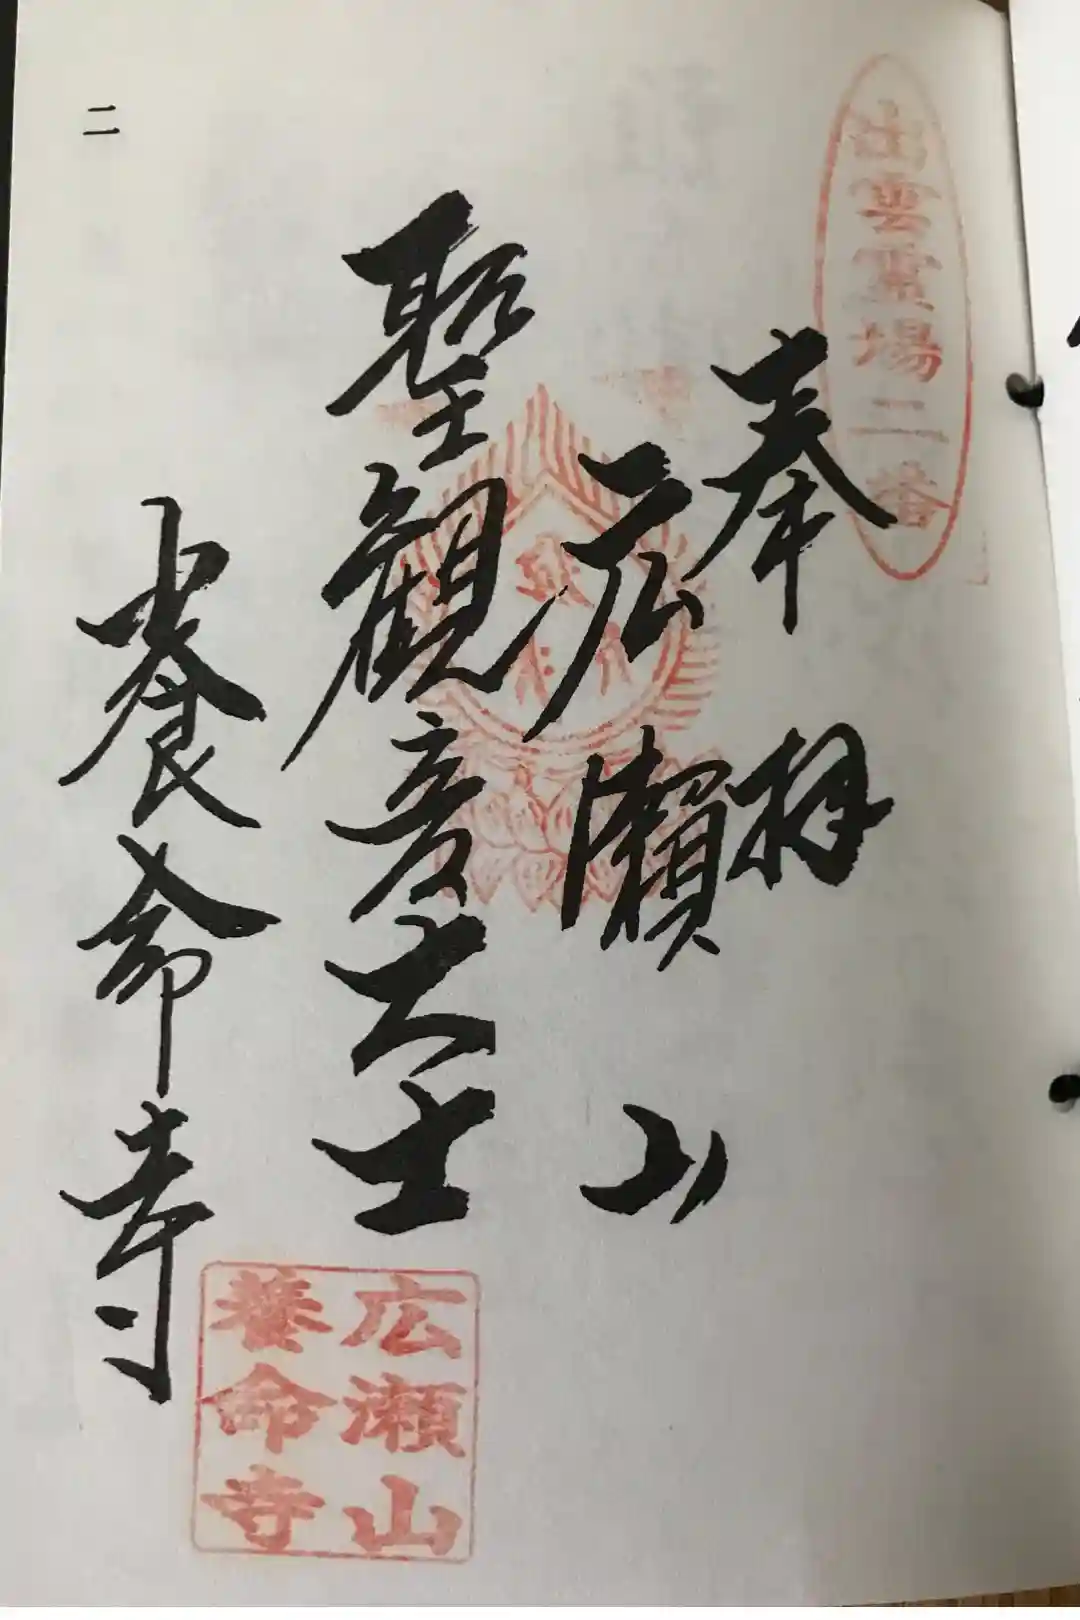 出雲霊場二番
奉拝
広瀬山
聖観音大士
養命寺
二
広瀬山
養命寺